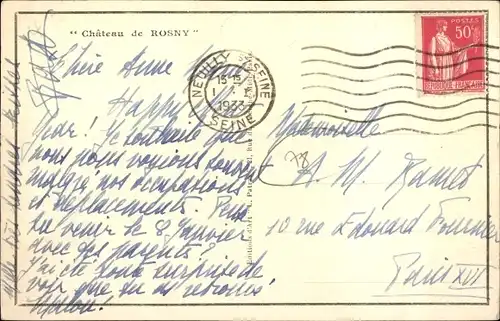 " Château de ROSNY "
Chère Anne M
Happy
Year! Je souhaite que
nous nous voyions souvent
malgré nos occupations
et déplacements. Peux
tu venir le 8 Janvier
avec des parents?
J'ai été toute surprise de
voir que tu as
mille très tendres
NEUILLY S SEINE
15-15
1933
SEINE
POSTES
50c
RÉPUBLIQUE FRANÇAISE
Mademoiselle
78
A. M. Ramet
10 rue Edouard Fournier
Paris XVI